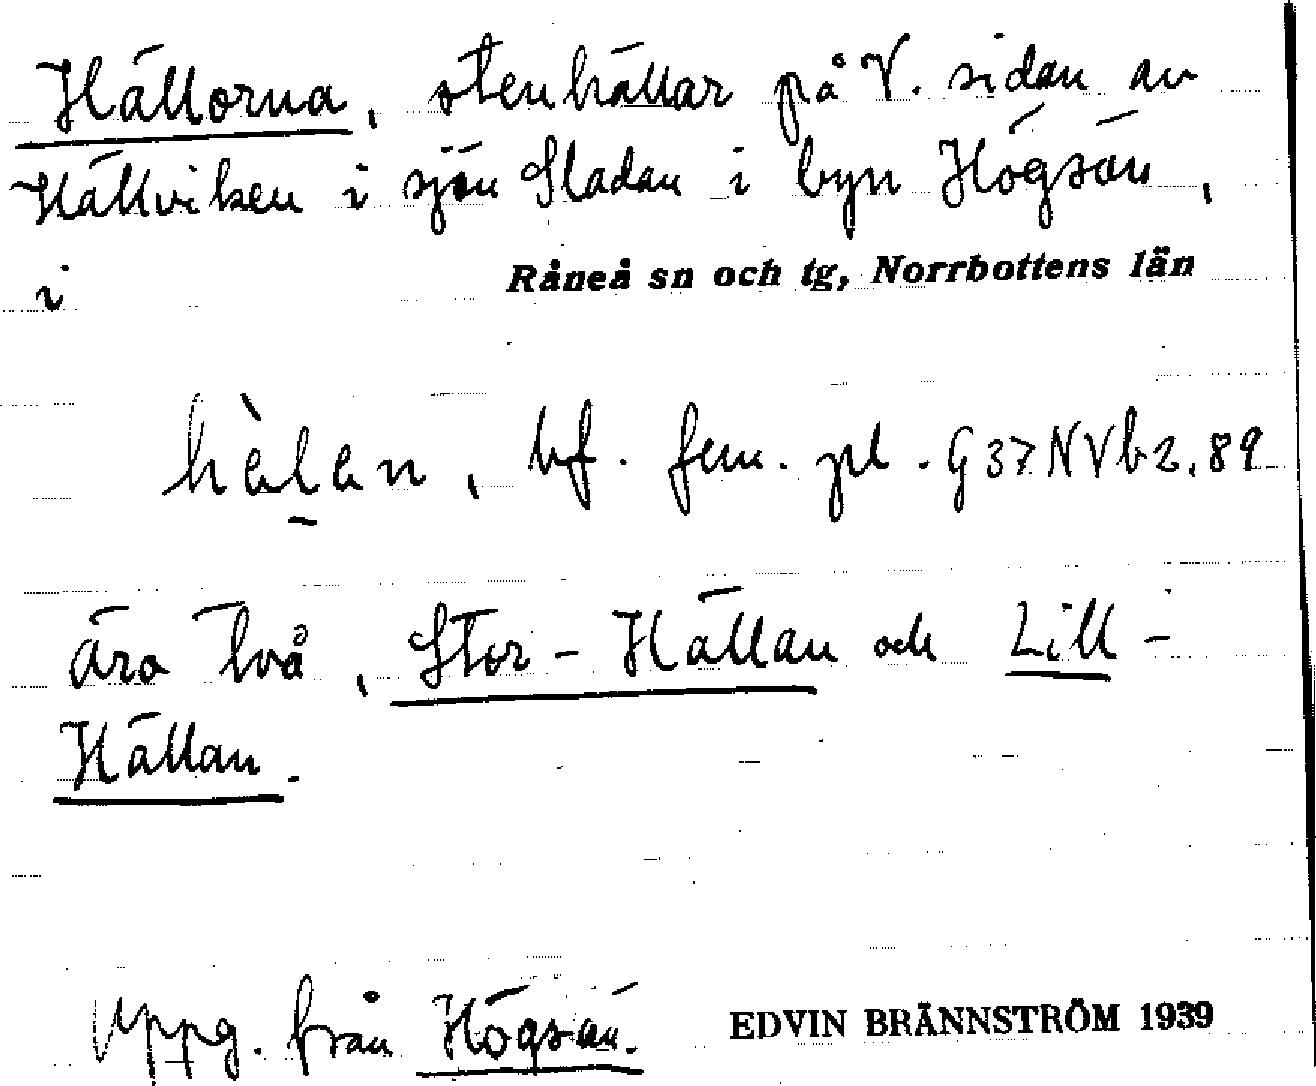 Hällorna, stenhällar på V. sidan av
Hällviken i sjön Sladan i byn Högsön,
i Råneå sn och tg, Norrbottens län
hὲlan, bf. fem. pl. G37NVb2.89
äro två, Stor-Hällan och Lill-
Hällan.
Uppg. från Högsön. EDVIN BRÄNNSTRÖM 1939